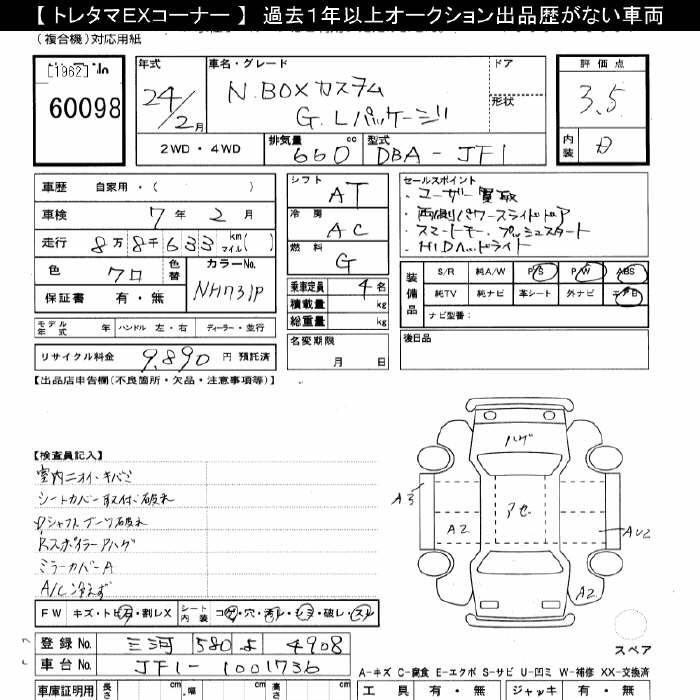 【 トレタマEXコーナー 】 過去1年以上オークション出品歴がない車両
(複合機)対応用紙
[1962]
60098
年式
24/2月
車名・グレード
N.BOXカスタム
G.Lパッケージ
ドア
形状
評価点
3.5
内装
D
2WD・4WD
排気量
660 cc
型式
DBA-JF1
車歴 自家用・( )
車検 7年2月
走行 8万8千633 km マイル( )
色 クロ
色替
カラーNo.
NH731P
保証書 有・無
モデル年式 年 ハンドル 左・右 ディーラー・並行
リサイクル料金 9,890 円 預託済
シフト AT
冷房 AC
燃料 G
乗車定員 4名
積載量 kg
総重量 kg
名変期限
月 日
セールスポイント
・ユーザー買取
・両側パワースライドドア
・スマートキー、プッシュスタート
・HIDヘッドライト
装備品
S/R 純A/W P/S P/W ABS
純TV 純ナビ 革シート 外ナビ エアB
ナビ型番:
後日品
【出品店申告欄(不良箇所・欠品・注意事項等)】
【検査員記入】
室内ニオイ・キバミ
シートカバー取付、破れ
Dシャフトブーツ破れ
Rスポイラーアハゲ
ミラーカバーA
A/C冷えず
ハゲ
アセ
A3
A2
AU2
A2
スペア
FW キズ・トビ石・割レX
シート内装 コゲ・穴・汚レ・シミ・破レ・スレ
登録No. 三河 580 よ 4908
車台No. JF1-1001736
A-キズ C-腐食 E-エクボ S-サビ U-凹ミ W-補修 XX-交換済
車庫証明用 長さ cm 幅 cm 高さ cm
工具 有・無 ジャッキ 有・無